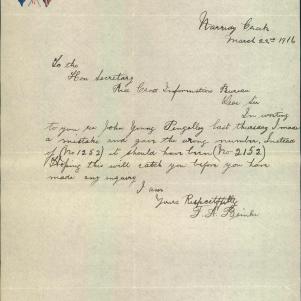 March 22nd 1916
To the
Hon Secretary
Red Cross Information Bureau
Dear Sir
In writing
to you re John Young Pengelley last Thursday I made
a mistake and gave the wrong number, instead
of (No 1252) it should have been (No 2152)
Hoping this will catch you before you have
made any inquiry
I am
Yours Respectfully